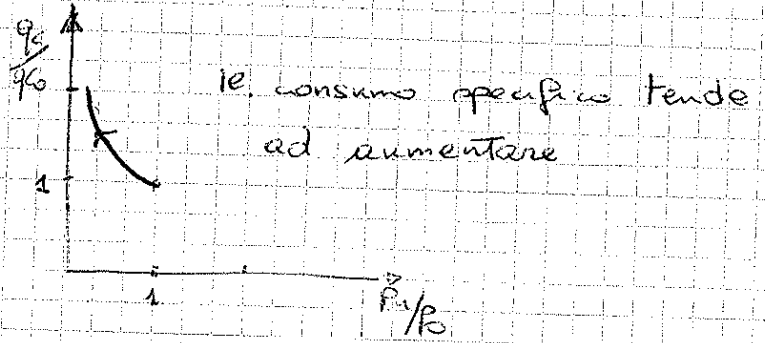 qs/qs0
ie. consumo specifico tende
ad aumentare
1
1
Pu/P0